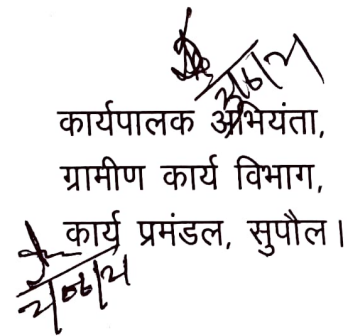 कार्यपालक अभियंता,
ग्रामीण कार्य विभाग,
कार्य प्रमंडल, सुपौल।